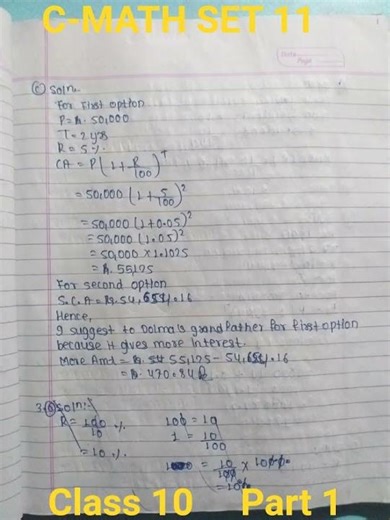 C-MATH SET 11
Date
Page
c Soln.
For First option
P = Rs. 50,000
T = 2 yrs
R = 5 %
CA = P(1 + R/100)^T
= 50,000 (1 + 5/100)^2
= 50,000 (1+0.05)^2
= 50,000 (1.05)^2
= 50,000 × 1.1025
= Rs. 55,125
For second option
S.C.A = Rs. 54,654.16
Hence,
I suggest to Dolma's grandfather for first option
because it gives more interest.
More Amt = Rs. 55,125 - 54,654.16
= Rs. 470.84
3. Soln:
R = 100/10 %
= 10 %
100 = 10
1 = 10/100
= 10/100 × 100
Class 10 Part 1